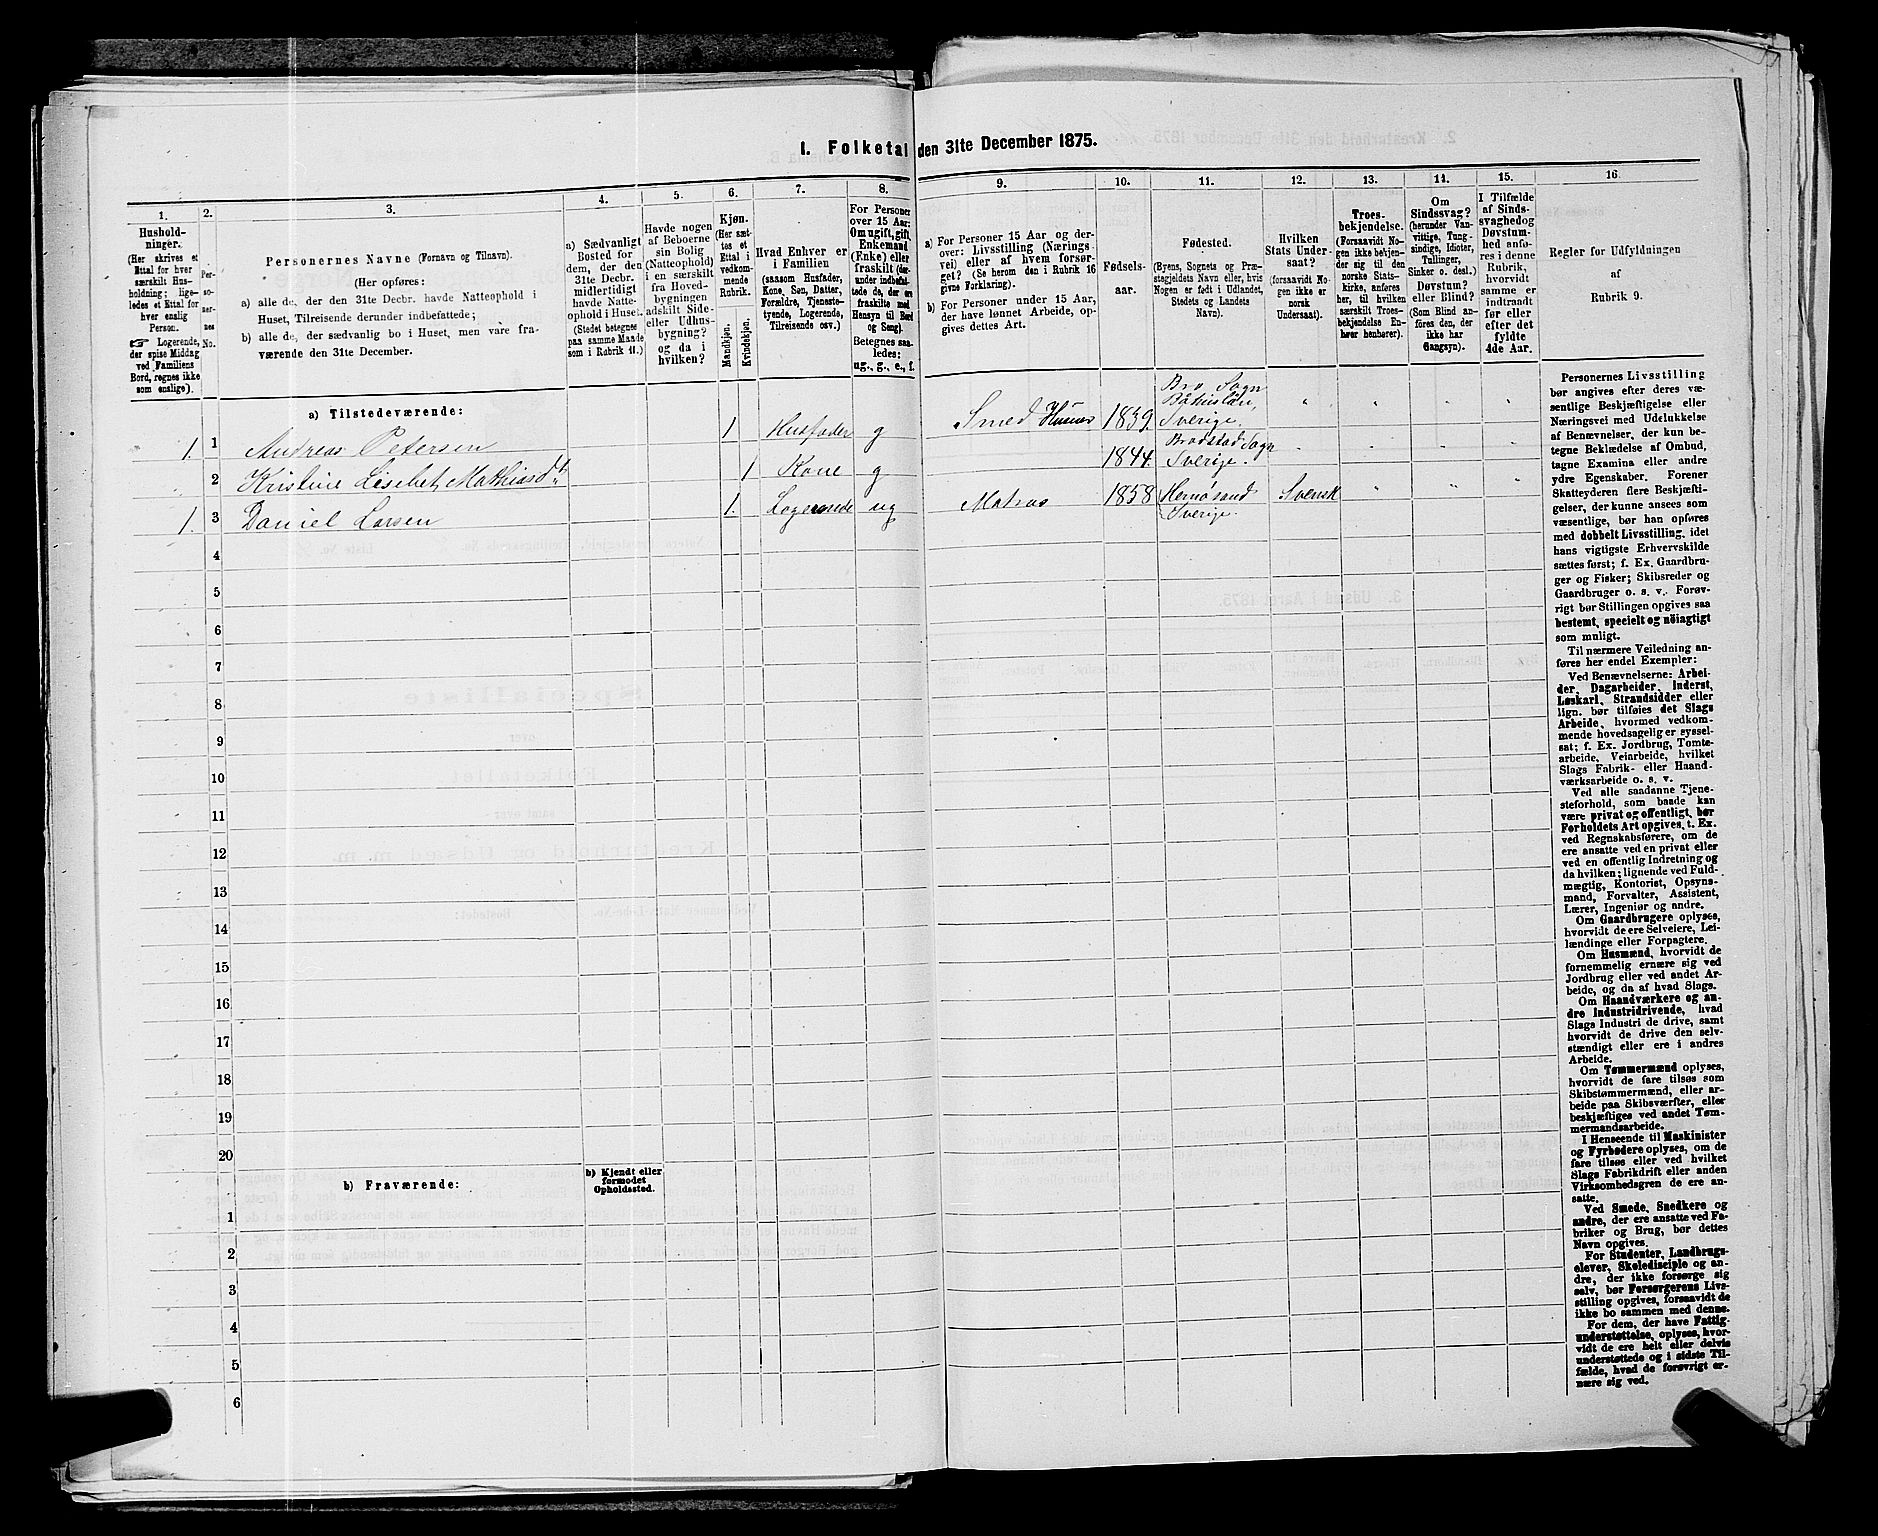 I. Folketal den 31te December 1875.
1.
Hushold-
ninger.
(Her skrives et
Ettal for hver
særskilt Hus-
holdning; lige-
ledes et Ettal for
hver enslig
Person.
☞ Logerende,
der spise Middag
ved Familiens
Bord, regnes ikke
som enslige).
2.
Per-
so-
ner-
nes
No.
3.
Personernes Navne (Fornavn og Tilnavn).
(Her opføres:
a) alle de, der den 31te Decbr. havde Natteophold i
Huset, Tilreisende derunder indbefattede;
b) alle de, der sædvanlig bo i Huset, men vare fra-
værende den 31te December.
4.
a) Sædvanligt
Bosted for
dem, der den
31te Decbr.
midlertidigt
havde Natte-
ophold i Huset.
(Stedet betegnes
paa samme Maade
som i Rubrik 11.)
5.
Havde nogen
af Beboerne
sin Bolig
(Natteophold)
i en særskilt
fra Hoved-
bygningen
adskilt Side-
eller Udhus-
bygning?
og da i
hvilken?
6.
Kjøn.
(Her sæt-
tes et
Ettal i
vedkom-
mende
Rubrik.
Mandkjøn.
Kvindekjøn.
7.
Hvad Enhver er
i Familien
(saasom Husfader,
Kone, Søn, Datter,
Forældre, Tjeneste-
tyende, Logerende,
Tilreisende osv.)
8.
For Personer
over 15 Aar:
Om ugift, gift,
Enkemand
(Enke) eller
fraskilt (der-
under indbefat-
tede de, der ere
fraskilte med
Hensyn til Bord
og Seng).
Betegnes saa-
ledes:
ug., g., e., f.
9.
a) For Personer 15 Aar og der-
over: Livsstilling (Nærings-
vei) eller af hvem forsør-
get? (Se herom den i Rubrik 16
givne Forklaring).
b) For Personer under 15 Aar,
der have lønnet Arbeide, op-
gives dettes Art.
10.
Fødsels-
aar.
11.
Fødested.
(Byens, Sognets og Præ-
stegjeldets Navn eller, hvis
Nogen er født i Udlandet,
Stedets og Landets
Navn).
12.
Hvilken
Stats Under-
saat?
(forsaavidt No-
gen ikke er
norsk
Undersaat).
13.
Troes-
bekjendelse.
(Forsaavidt No-
gen ikke bekjen-
der sig til den
norske Stats-
kirke, anføres
her, til hvilken
særskilt Troes-
bekjendelse En-
hver henhører).
14.
Om
Sindssvag?
(herunder Van-
vittige, Tung-
sindige, Idioter,
Tullinger,
Sinker o. desl.)
Døvstum?
eller Blind?
(Som Blind an-
føres den, der
ikke har
Gangsyn).
15.
I Tilfælde
af Sinds-
svaghed og
Døvstum-
hed anfø-
res i denne
Rubrik,
hvorvidt
samme er
indtraadt
før eller
efter det
fyldte
4de Aar.
16
Regler for Udfyldningen
af
Rubrik 9.
a) Tilstedeværende:
1. 1 Andreas Petersen 1 Husfader g Smed 1839 Bro Sogn
Sverige. " " " "
2 Kristine Lisebet Mathiasd 1 Kone g 1844. Sogn
Sverige. " " " "
1. 3 Daniel Larsen 1. Logerende ug Matros 1858 Hernøsand Svensk " " "
Sverige.
4
5
6
7
8
9
10
11
12
13
14
15
16
17
18
19
20
b) Fraværende:
b) Kjendt eller
formodet
Opholdssted.
1
2
3
4
5
6
Personernes Livsstilling
bør angives efter deres væ-
sentlige Beskjæftigelse eller
Næringsvei med Udelukkelse
af Benævnelser, der kun be-
tegne Beklædelse af Ombud,
tagne Examina eller andre
ydre Egenskaber. Forener
Skatteyderen flere Beskjæfti-
gelser, der kunne ansees som
væsentlige, bør han opføres
med dobbelt Livsstilling, idet
hans vigtigste Erhvervskilde
sættes først; f. Ex. Gaardbru-
ger og Fisker; Skibsreder og
Gaardbruger o. s. v. Forøv-
rigt bør Stillingen opgives saa
bestemt, specielt og nöiagtigt
som muligt.
Til nærmere Veiledning an-
føres her endel Exempler:
Ved Benævnelserne: Arbei-
der, Dagarbeider, Inderst,
Løskarl, Strandsidder eller
lign. bør tilføies det Slags
Arbeide, hvormed vedkom-
mende hovedsagelig er syssel-
sat; f. Ex. Jordbrug, Tomte-
arbeide, Veiarbeide, hvilket
Slags Fabrik- eller Haand-
værksarbeide o. s. v.
Ved alle saadanne Tjene-
steforhold, som baade kan
være privat og offentligt, bør
Forholdets Art opgives, t. Ex.
ved Regnskabsførere, om de
ere ansatte ved en privat eller
ved en offentlig Indretning og
da hvilken; lignende ved Fuld-
mægtig, Kontorist, Opsyns-
mand, Forvalter, Assistent,
Lærer, Ingeniør og andre.
Om Gaardbrugere oplyses,
hvorvidt de ere Selveiere, Lei-
lændinge eller Forpagtere.
Om Husmænd, hvorvidt de
fornemmelig ernære sig ved
Jordbrug eller ved andet Ar-
beide, og da af hvad Slags.
Om Haandværkere og an-
dre Industridrivende, hvad
Slags Industri de drive, samt
hvorvidt de drive den selv-
stændigt eller ere i andres
Arbeide.
Om Tømmermænd oplyses,
hvorvidt de fare tilsøs som
Skibstømmermænd, eller ar-
beide paa Skibsværfter, eller
beskjæftiges ved andet Tøm-
mermandsarbeide.
I Henseende til Maskinister
og Fyrbødere oplyses, om de
fare tilsøs eller ved hvilket
Slags Fabrikdrift eller anden
Virksomhedsgren de ere an-
satte.
Ved Smede, Snedkere og
andre, der ere ansatte ved Fa-
briker og Brug, bør dettes
Navn opgives.
For Studenter, Landbrugs-
elever, Skoledisciple og an-
dre, der ikke forsørge sig
selv, bør Forsørgerens Livs-
stilling opgives, forsaavidt de
ikke bo sammen med denne.
For dem, der have Fattig-
understøttelse, oplyses, hvor-
vidt de ere helt eller delvis
understøttede og i sidste Til-
fælde, hvad de forøvrigt er-
nære sig ved.